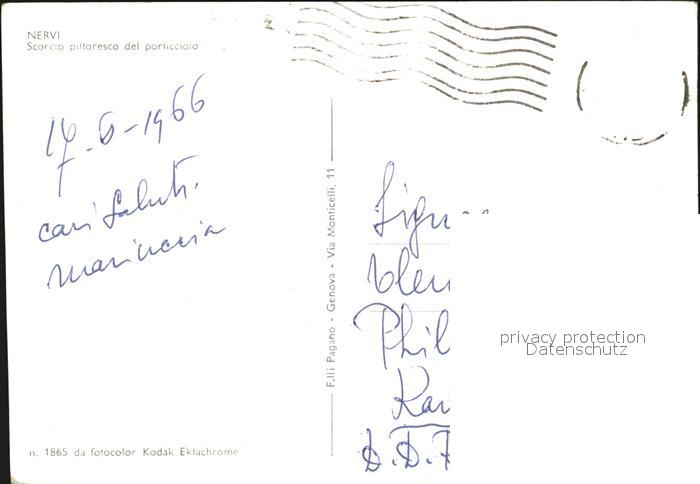 NERVI
Scorcio pittoresco del porticciolo
17-6-1966
cari saluti.
F.lli Pagano - Genova - Via Monticelli, 11
Sign
Phil
Kar
D.D.
privacy protection
Datenschutz
n. 1865 da fotocolor Kodak Ektachrome